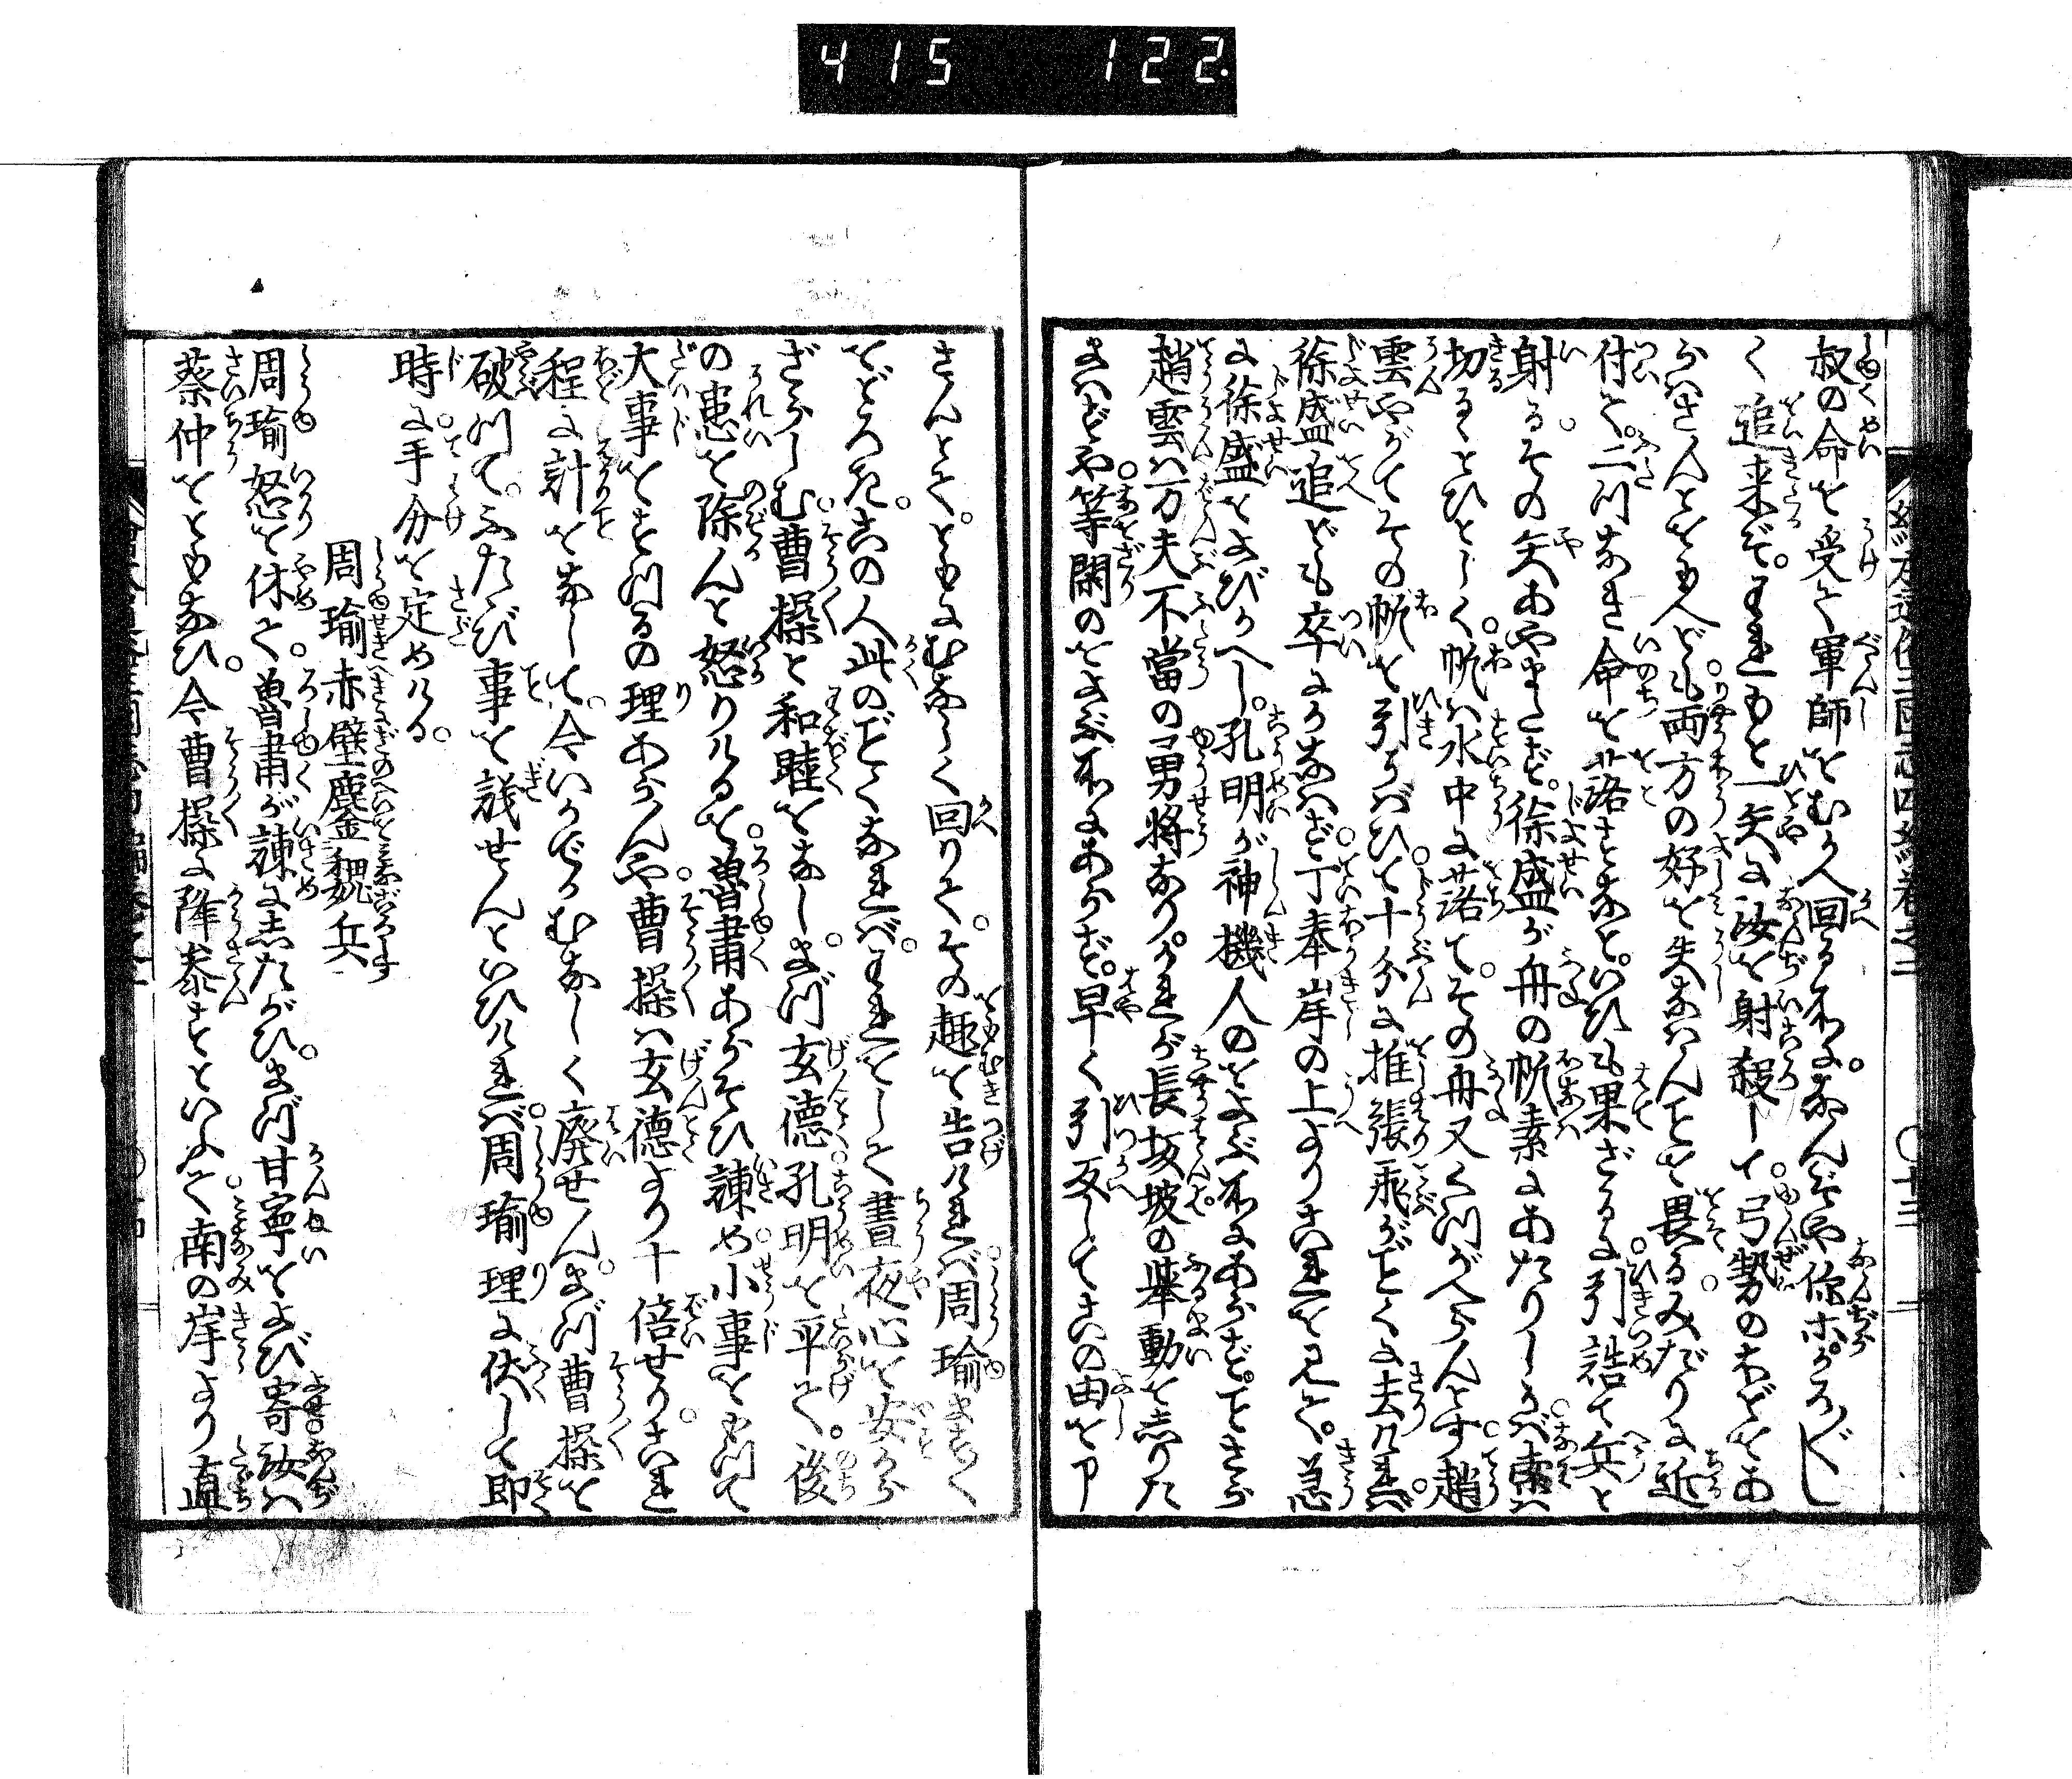 415 122.
叔の命を受て軍師をむかへ回る所に。なんぞや你等かろ〴〵し
く追来ぞ。われもと一矢に汝を射殺して弓勢のほどをあ
らはさんとをもへども両方の好を失なはんことを畏るみだりに近
付て。二つなき命を落すなと。いひも果ざるに引詰て兵と
射る。その矢あやまたず。徐盛が舟の帆綱にあたりしかば索は
切るゝとひとしく。帆は水中に落て。その舟又くつがへらんとす趙
雲やがてその帆を引かけて十分に推張飛がごとくに去ければ。
徐盛追ども卒にかなはず丁奉岸の上よりこれを見て。急
に徐盛をよびかへし。孔明が神機人のをよぶ所にあらず。ことさら
趙雲は万夫不當の勇將なり。かれが長坂坡の舉動をしりた
まはずや等閑のをよぶ所にあらず。早く引返してこの由を申
さんとて。ともにむなしく回りて。その趣を告ければ周瑜まさしく
をどろき。この人此のごとくなれば。われをして晝夜心を安から
ざらしむ曹操と和睦をなし。まづ玄德孔明を平て。後
の患を除んと怒りけるを。魯肅あらそひ諫め小事をもつて
大事をすつるの理あらんや。曹操は玄德より十倍せり。これ
程に計をなして。今いかでかむなしく廃せん。まづ曹操を
破つて。ふたゝび事を議せんといひければ。周瑜理に伏して即
時に手分を定めける。
周瑜赤壁鏖魏兵
周瑜怒を休て。魯肅が諫にしたがひ。まづ甘寧をよび寄汝は
蔡仲をともなひ。今曹操に降参すといふて南の岸より直